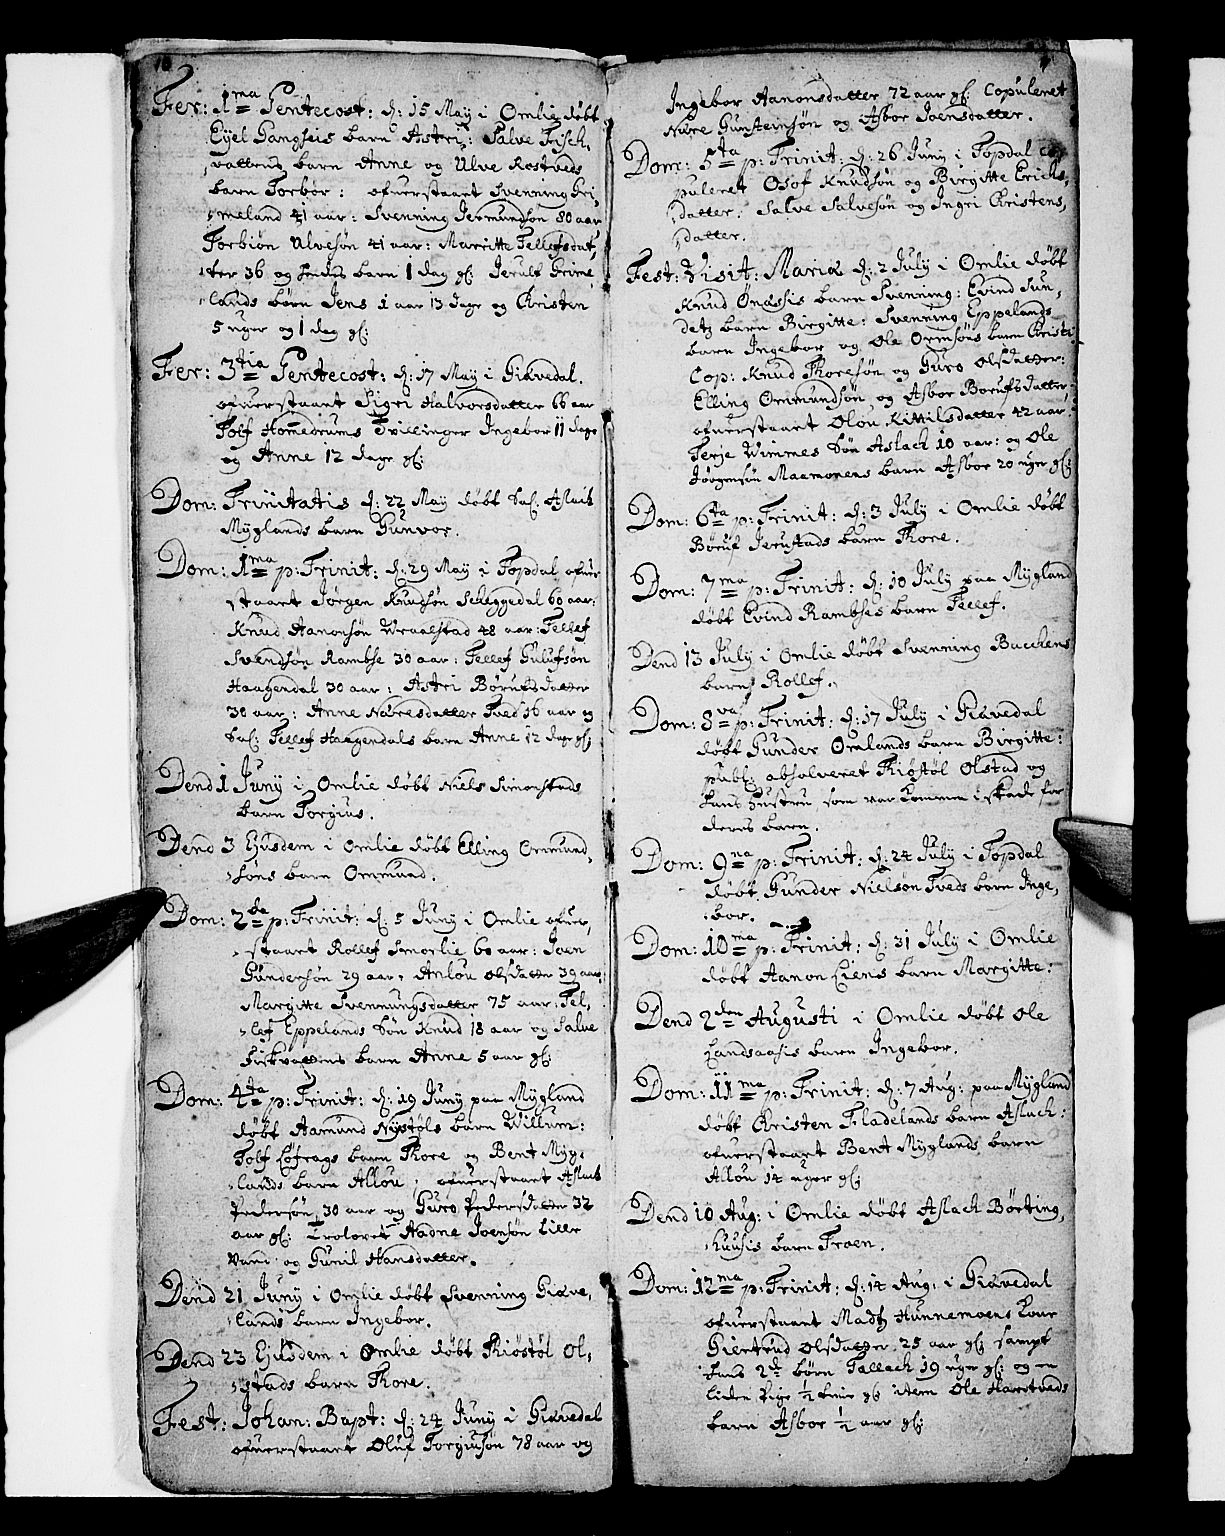 Fer: 1ma Pentecost: d: 15 May i Omlie døbt
Eyel Gangseis barn Astri: Salve Frisch,
vattens barn Anne og Ulve Rostveds
barn Torbor: ofuerstaart Svenning Gri,
meland 41 aar: Svenning Jermundsøn 80 aar
Torbiön Ulvesøn 41 aar: Marritte Tellefsdat,
ter 36 og hendis barn 1 dag gl: Jerulf Grime,
lands børn Jens 1 aar 13 dage og Christin
5 uger og 1 dag gl:
Fer: 3tia Pentecost: d: 17 May i Giøvedal.
ofuerstaart Sigri Halvorsdatter 66 aar
Tolf Homedrums Tvillinger Ingebor 11 dage
og Anne 12 dage gl:
Dom: Trinitatis d: 22 May døbt Sal: Aslach
Myglands barn Gunvor.
Dom: 1ma p: Trinit: d: 29 May i Topdal ofuer
staart Jørgen Knudsøn Scheggedal 60 aar:
Knud Aanonsøn Wraalstad 48 aar: Tellef
Svendsøn Rambse 30 aar: Tellef Gulufsøn
Haagendal 30 aar: Astri Børufsdatter
30 aar: Anne Nåresdatter Tved 36 aar og
Sal: Tellef Haagendals barn Anne 12 dage gl:
Dend 1 Juny i Omlie døbt Niels Simonstads
barn Torgius.
Dend 3 Ejusdem i Omlie døbt Elling Ormund,
søns barn Ommund.
Dom: 2da p: Trinit: d: 5 Juny i Omlie ofuer,
staart Rollef Smorlie 60 aar: Joen
Gundersøn 29 aar, Anlou Olsdatter 39 aar
Margitte Svennungsdatter 75 aar: Tel,
lef Eppelands Søn Knud 18 aar og Salve
Fiskvattens barn Anne 5 aar gl:
Dom: 4ta p: Trinit: d: 19 Juny paa Mygland
døbt Aamund Nystøls barn Willum:
Tolf Løfrags barn Thore og Bent Myg,
lands barn Allou, ofuerstaart Aslach
Pedersøn 30 aar og Guro Pedersdatter 32
aar gl: Trolovet Aadne Joensøn Lille
vand og Gunil Hansdatter.
Dend 21 Juny i Omlie døbt Svenning Giøve,
lands barn Ingebor.
Dend 23 Ejusdem i Omlie døbt Kiøstøl Ol,
stads barn Thore.
Fest: Johan: Bapt: d: 24 Juny i Giøvedal
ofuerstaart Oluf Torgiusøn 78 aar og
Ingebor Aanonsdatter 72 aar gl: Copuleret
Nåre Gunsteinsøn og Asbor Joensdatter.
Dom: 5ta p: Trinit: d: 26 Juny i Topdal co,
puleret Osof Knudsøn og Birgitte Erichs,
datter: Salve Salvesøn og Ingri Christens,
datter.
Fest: Visit: Mariæ d: 2 July i Omlie døbt
Knud barn Svenning: Evind Sun,
dets barn Birgitte: Svenning Eppelands
barn Ingebor og Ole Ormsøns barn Christi
Cop: Knud Thoresøn og Guro Olsdatter:
Elling Ommundsøn og Asbor Borufsdatter,
ofuerstaart Olou Kittilsdatter 42 aar
Terje Wimmes Søn Aslach 10 aar: og Ole
Jørgensøn Maamonens barn Asbor 20 uger gl:
Dom: 6ta p: Trinit: d: 3 July i Omlie døbt
Børuf Jerustads barn Thore.
Dom: 7ma p: Trinit: d: 10 July paa Mygland
døbt Evind Rambses barn Tellef.
Dend 13 July i Omlie døbt Svenning Bacchens
barn Rollef.
Dom: 8va p: Trinit: d: 17 July i Giøvedal
døbt Gunder Omlands barn Birgitte:
publ: absolveret Kiøstøl Olstad og
hans hustru som var kommen i skade for
deres barn.
Dom: 9na p: Trinit: d: 24 July i Topdal
døbt Gunder Nielsøn Tveds barn Inge,
bor.
Dom: 10ma p: Trinit: d: 31 July i Omlie
døbt Aanon Liens barn Margitte.
Dend 2den Augusti i Omlie døbt Ole
Landsaasis barn Ingebor.
Dom: 11ma p: Trinit: d: 7 Aug: paa Mygland
døbt Christen Fladelands barn Aslach:
ofuerstaart Bent Myglands barn
Allou 14 uger gl:
Dend 10 Aug: i Omlie døbt Aslach Børting,
huusis barn Troen.
Dom: 12ma p: Trinit: d: 14 Aug: i Giøvedal
ofuerstaart Madtz Hunnemoens kone
Giertrud Olsdatter 25 aar gl: sampt
hans 2de børn Tallach 19 uger gl: og en
liden pige ½ time gl: item Ole Harstveds
barn Asbor ½ aar gl: